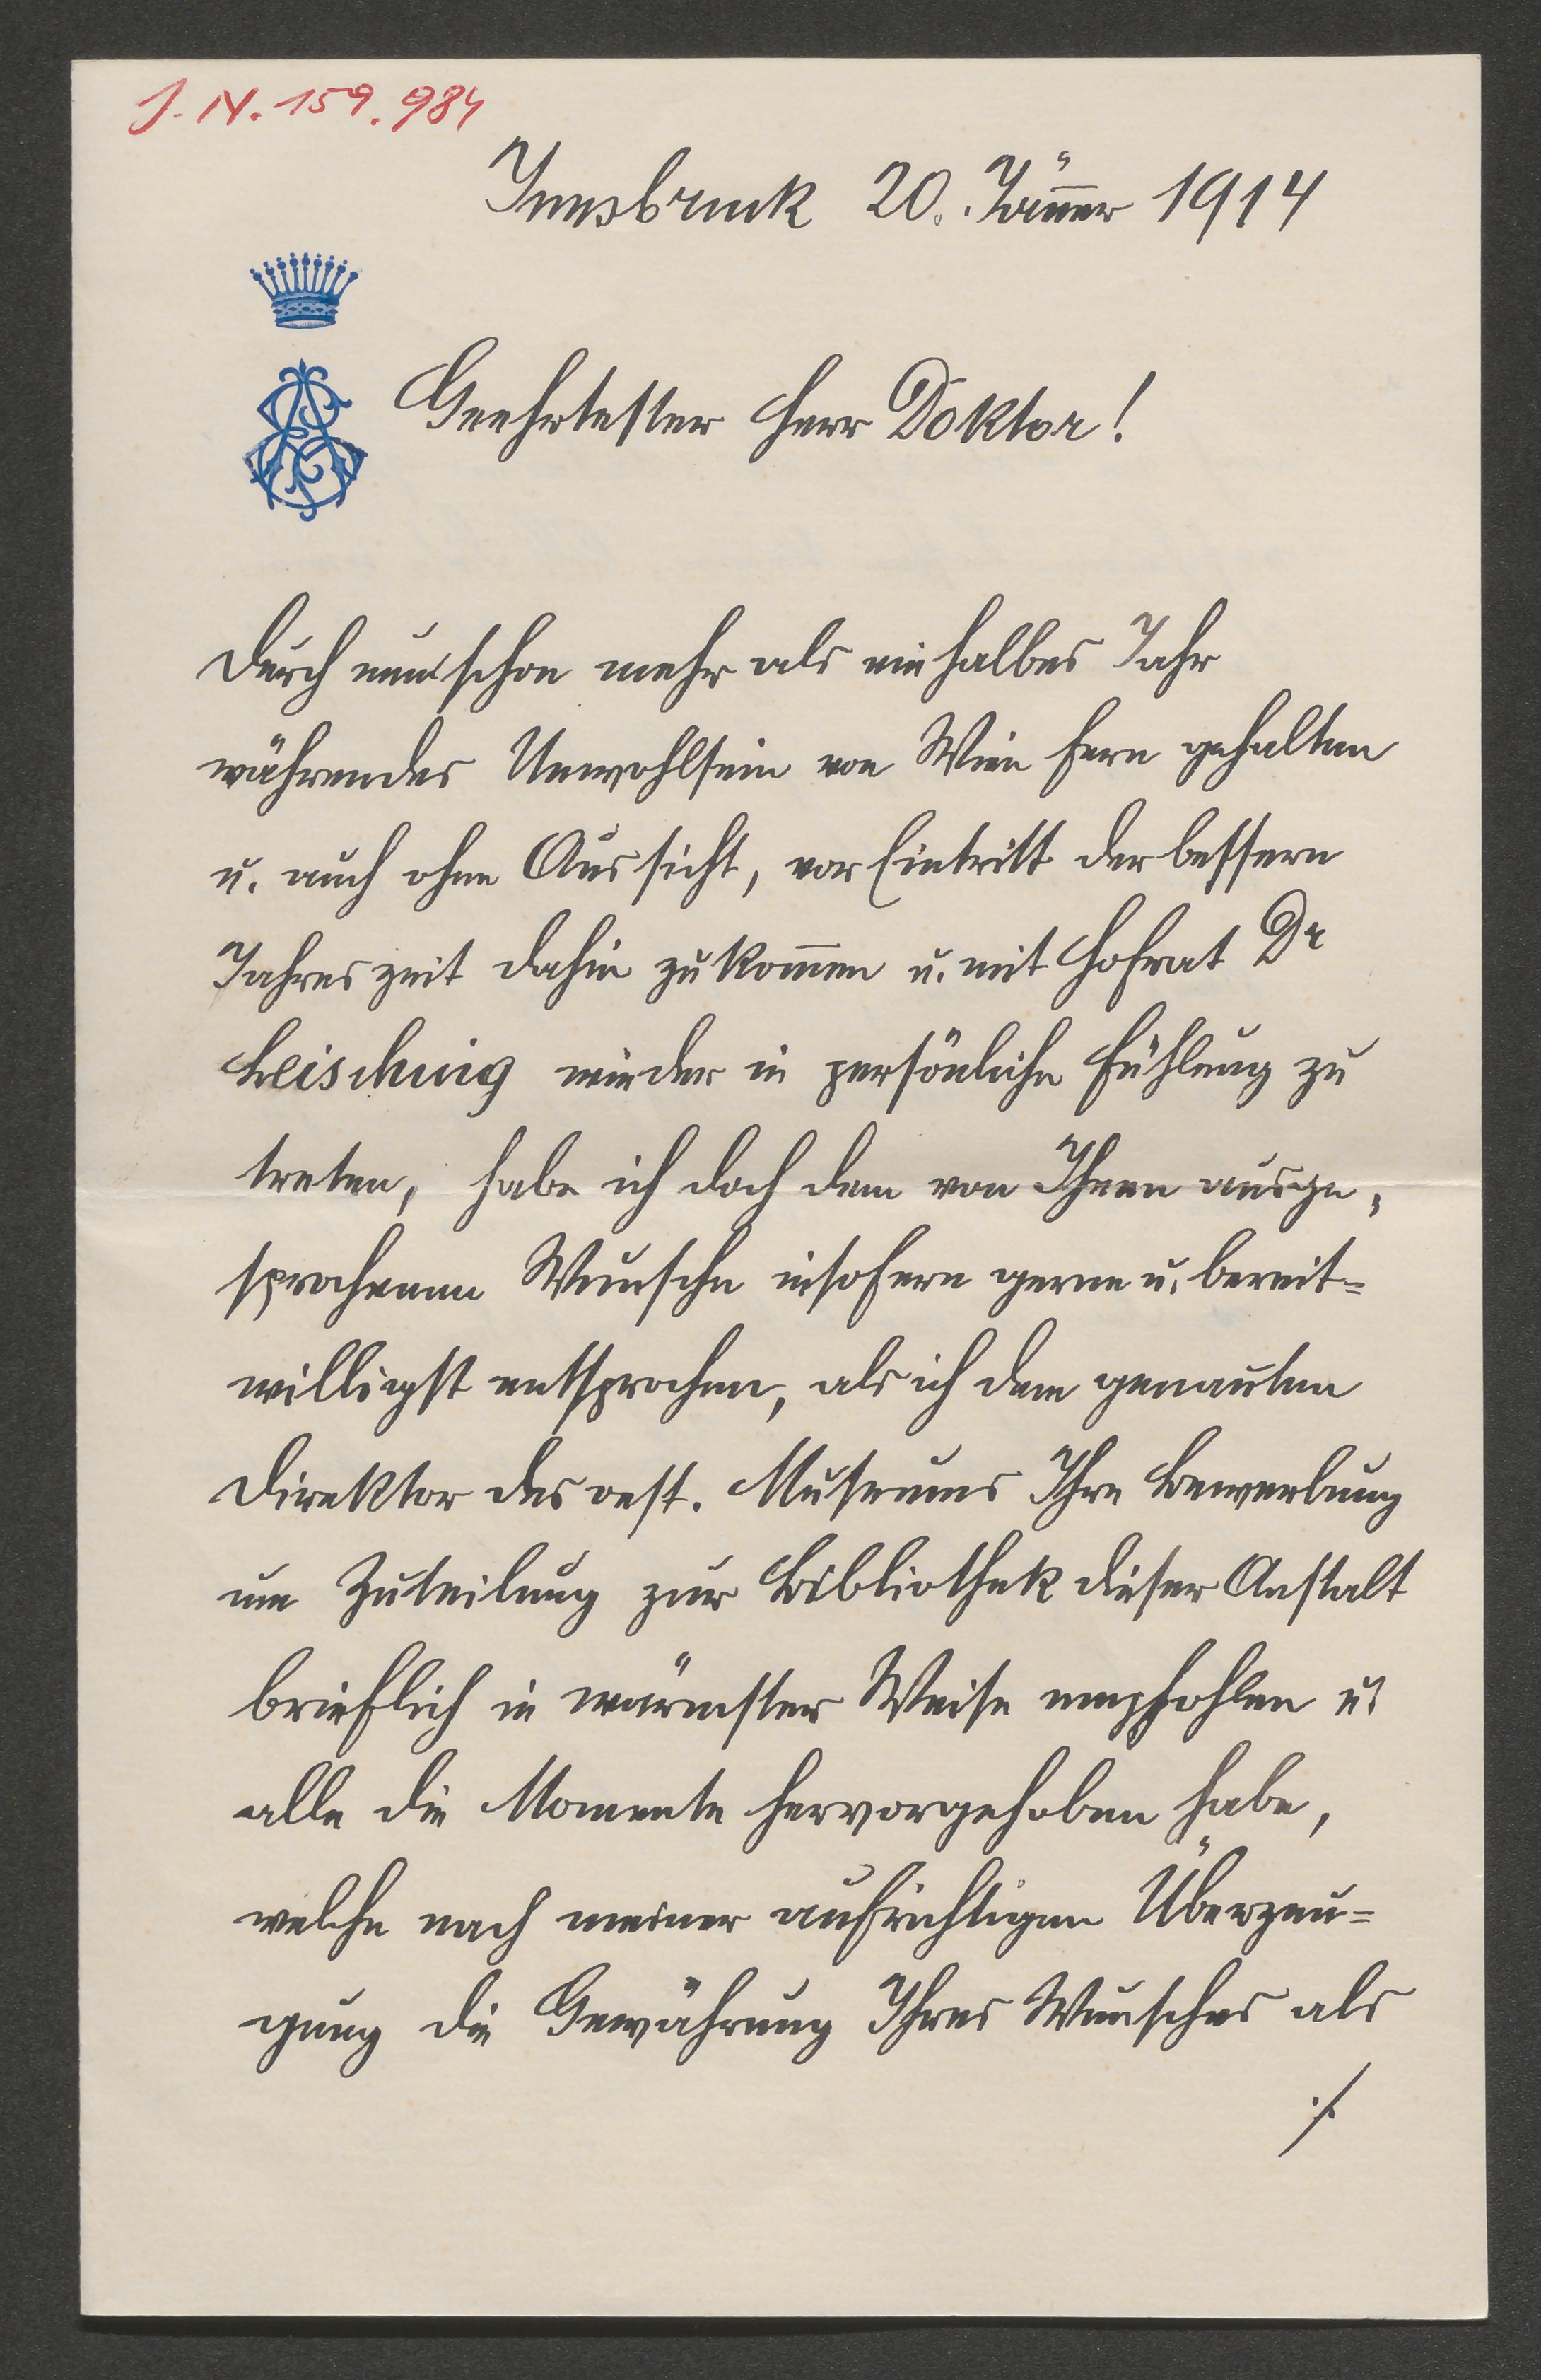 J. N. 159.984
Innsbruck 20. Jänner 1914
Geehrtester Herr Doktor!
Durch nun schon mehr als ein halbes Jahr
währendes Unwohlsein von Wien fern gehalten
u. auch ohne Aussicht, vor Eintritt der bessern
Jahreszeit dahin zu kom̄en u. mit Hofrat Dr
Leisching wieder in persönliche Fühlung zu
treten, habe ich doch dem von Ihnen ausge„
sprochenen Wunsche insofern gerne u. bereit=
willigst entsprochen, als ich dem genannten
Direktor des oest. Museums Ihre Bewerbung
um Zuteilung zur Bibliothek dieser Anstalt
brieflich in wärmster Weise empfohlen u.
alle die Momente hervorgehoben habe,
welche nach meiner aufrichtigen Überzeu=
gung die Gewährung Ihres Wunsches als
./.